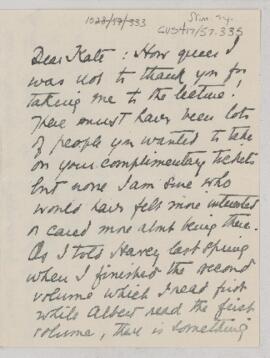 1023/57/333
CUSH17/57.335
Dear Kate: How queer I
was not to thank you for
taking me to the lecture!
There must have been lots
of people you wanted to take
on your complimentary tickets
but none I am sure who
would have felt more interested
or cared more about being there.
As I told Harvey last spring
when I finished the second
volume which I read first
while Albert read the first
volume, there is something